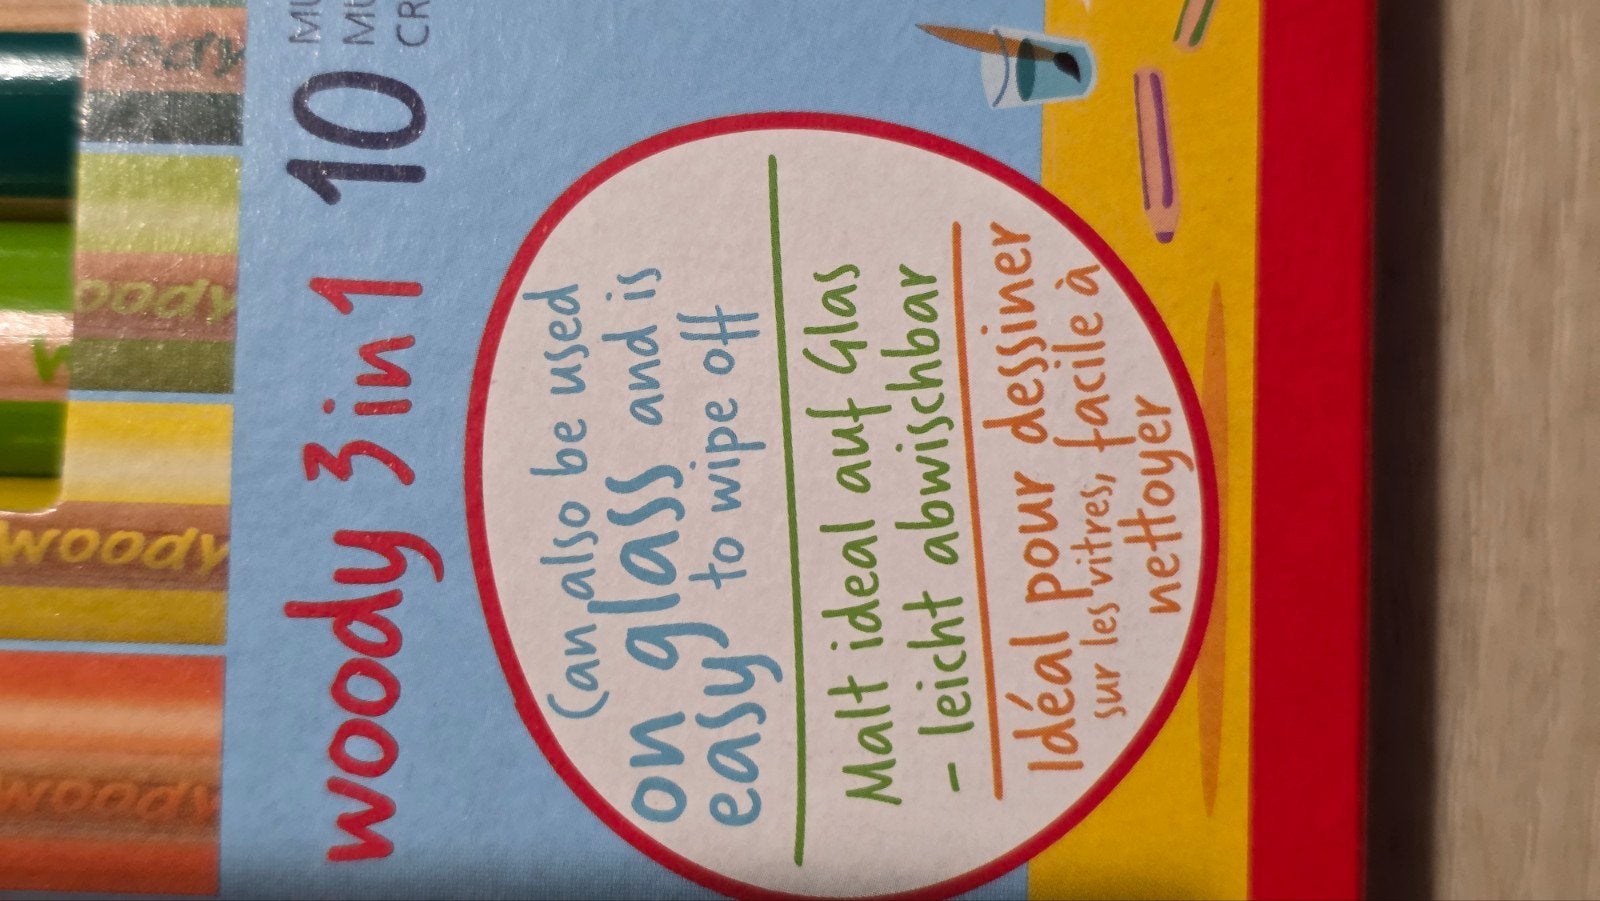 woody
woody
woody
woody
woody 3 in 1 10
Can also be used
on glass and is
easy to wipe off
Malt ideal auf Glas
- leicht abwischbar
Idéal pour dessiner
sur les vitres, facile à
nettoyer